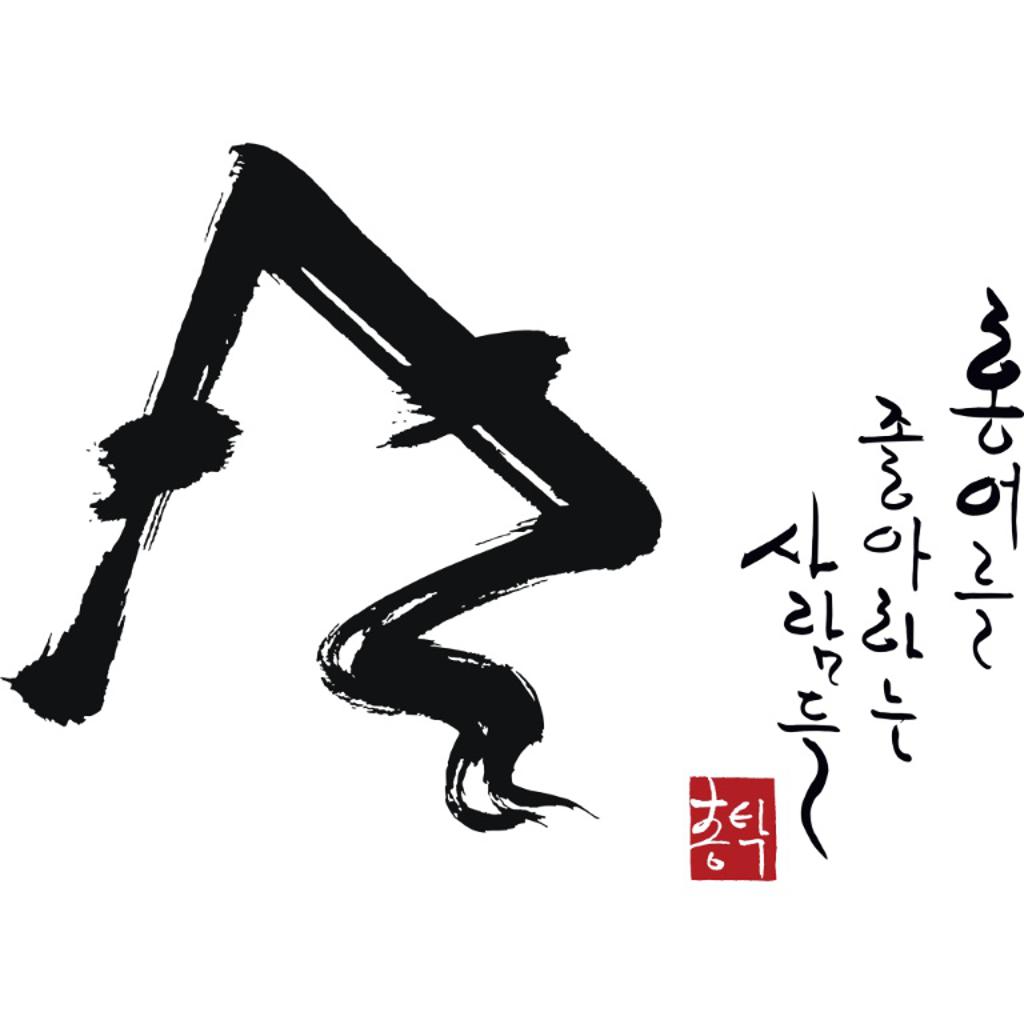 홍어를
좋아하는
사람들
홍탁